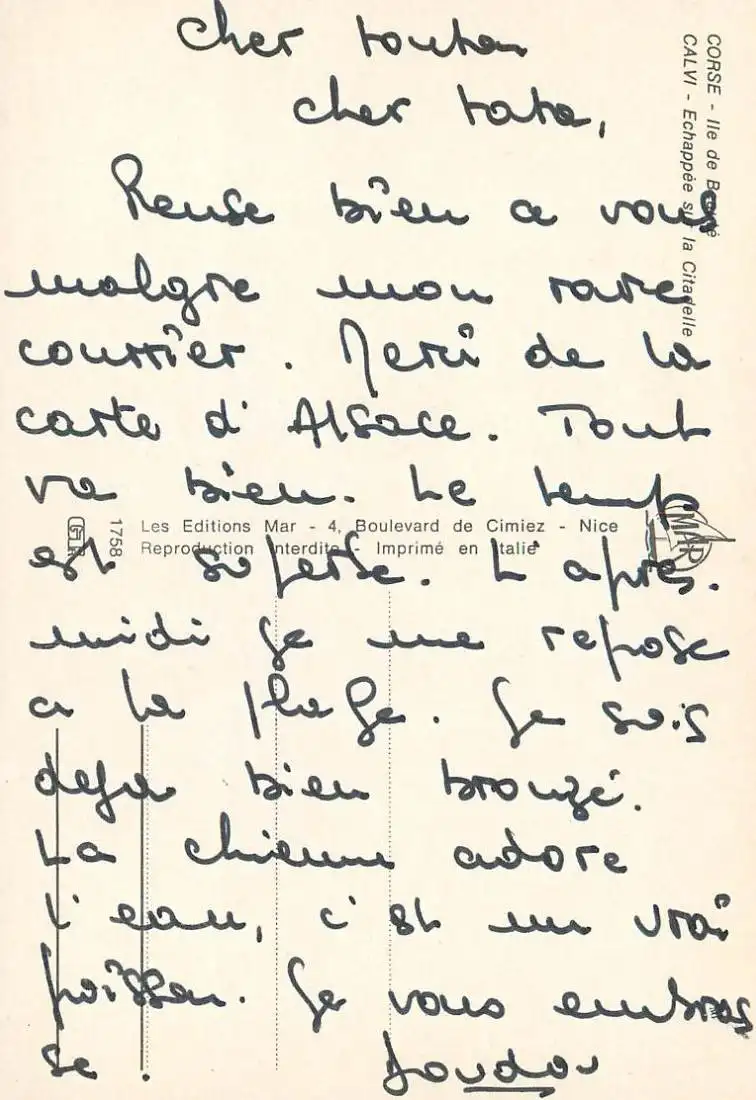 Cher tonton
cher tata,
Pense bien a vous
malgre mon rare
courrier. Merci de la
carte d'Alsace. Tout
va bien. Le temps
est superbe. L'après-
midi je me repose
a la plage. Je suis
deja bien bronzé.
La chienne adore
l'eau, c'est un vrai
poisson. Je vous embras
se.
CORSE - Ile de Beauté
CALVI - Echappée sur la Citadelle
1758
Les Editions Mar - 4, Boulevard de Cimiez - Nice
Reproduction interdite - Imprimé en Italie
MAR